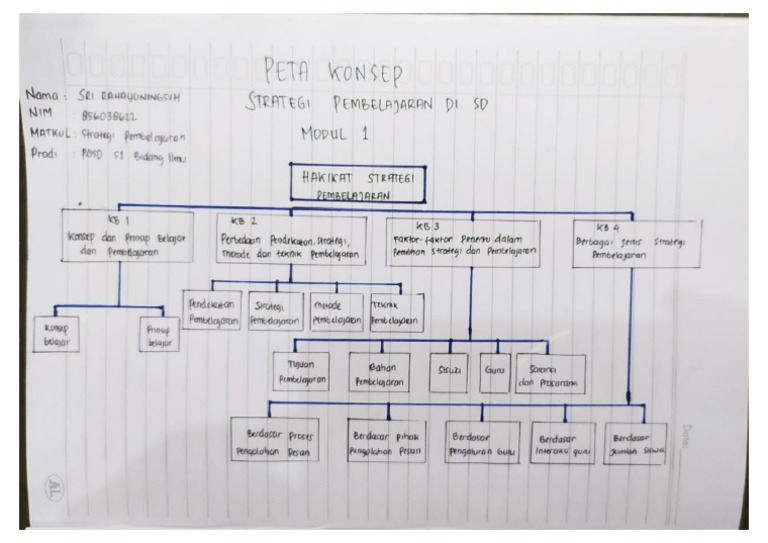 PETA KONSEP
STRATEGI PEMBELAJARAN DI SD
MODUL 1
Nama : SRI RAHAYUNINGSIH
NIM : 856038622
MATKUL : Strategi Pembelajaran
Prodi : PGSD S1 Bidang Ilmu
HAKIKAT STRATEGI
PEMBELAJARAN
KB 1
Konsep dan Prinsip Belajar
dan Pembelajaran
KB 2
Perbedaan Pendekatan, Strategi,
metode dan teknik Pembelajaran
KB 3
Faktor-faktor Penentu dalam
Pemilihan Strategi dan Pembelajaran
KB 4
Berbagai jenis Strategi
Pembelajaran
Konsep
belajar
Prinsip
belajar
Pendekatan
Pembelajaran
Strategi
Pembelajaran
metode
Pembelajaran
Teknik
Pembelajaran
Tujuan
Pembelajaran
Bahan
Pembelajaran
Siswa
Guru
Sarana
dan Prasarana
Berdasar Proses
Pengolahan Pesan
Berdasar Pihak
Pengolahan Pesan
Berdasar
Pengaturan Guru
Berdasar
Interaksi guru
Berdasar
Jumlah Siswa
Date:
AL